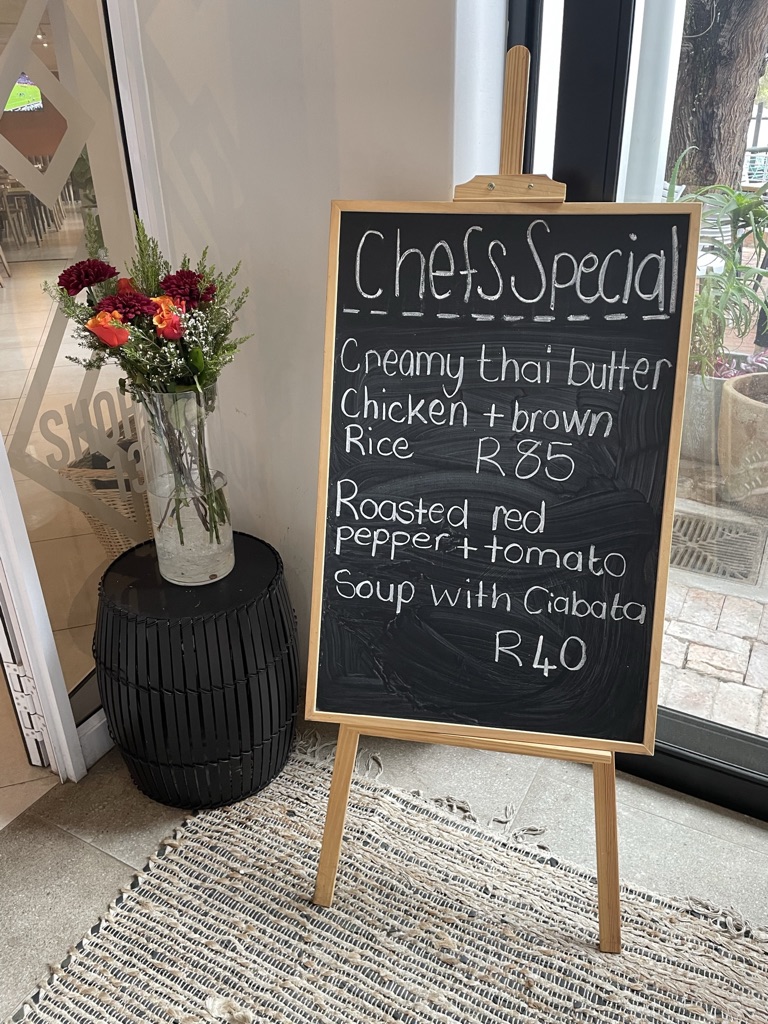 Chefs Special
Creamy thai butter
Chicken + brown
Rice R85
Roasted red
pepper + tomato
Soup with Ciabata
R40
SHOP